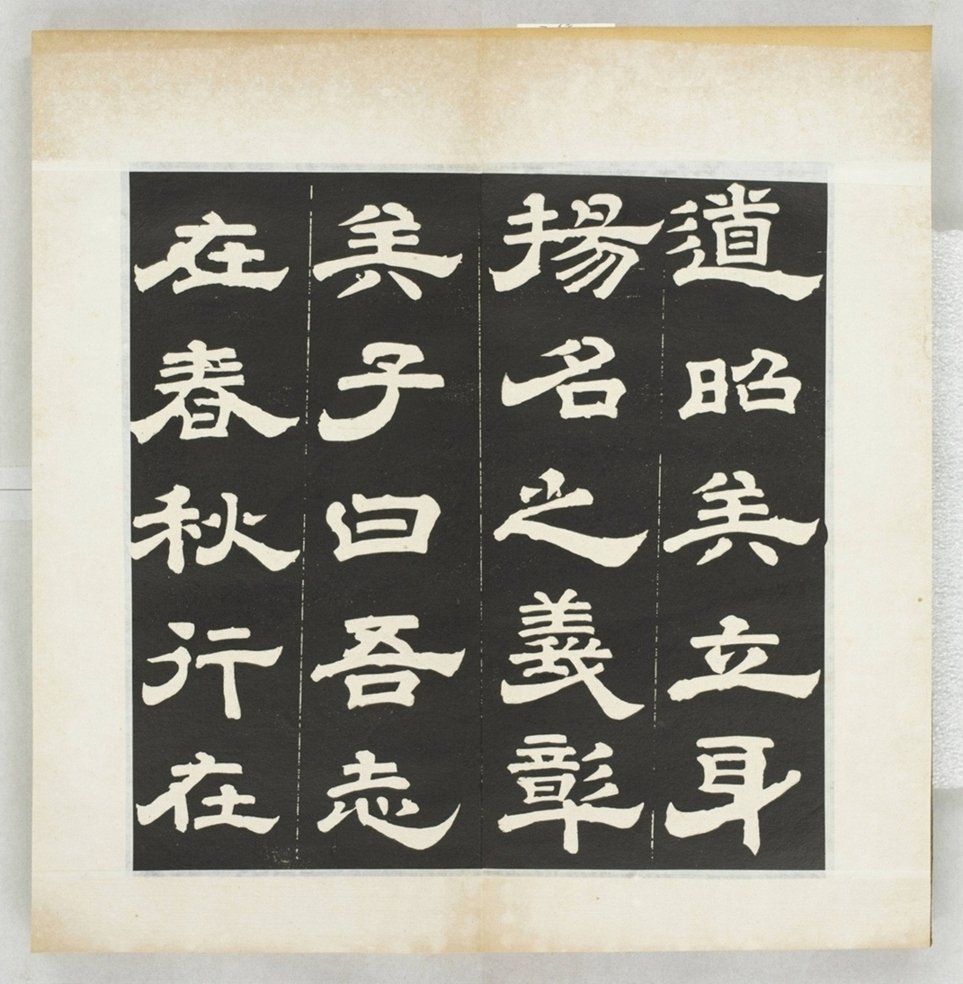 道昭矣立身
揚名之義彰
矣子曰吾志
在春秋行在